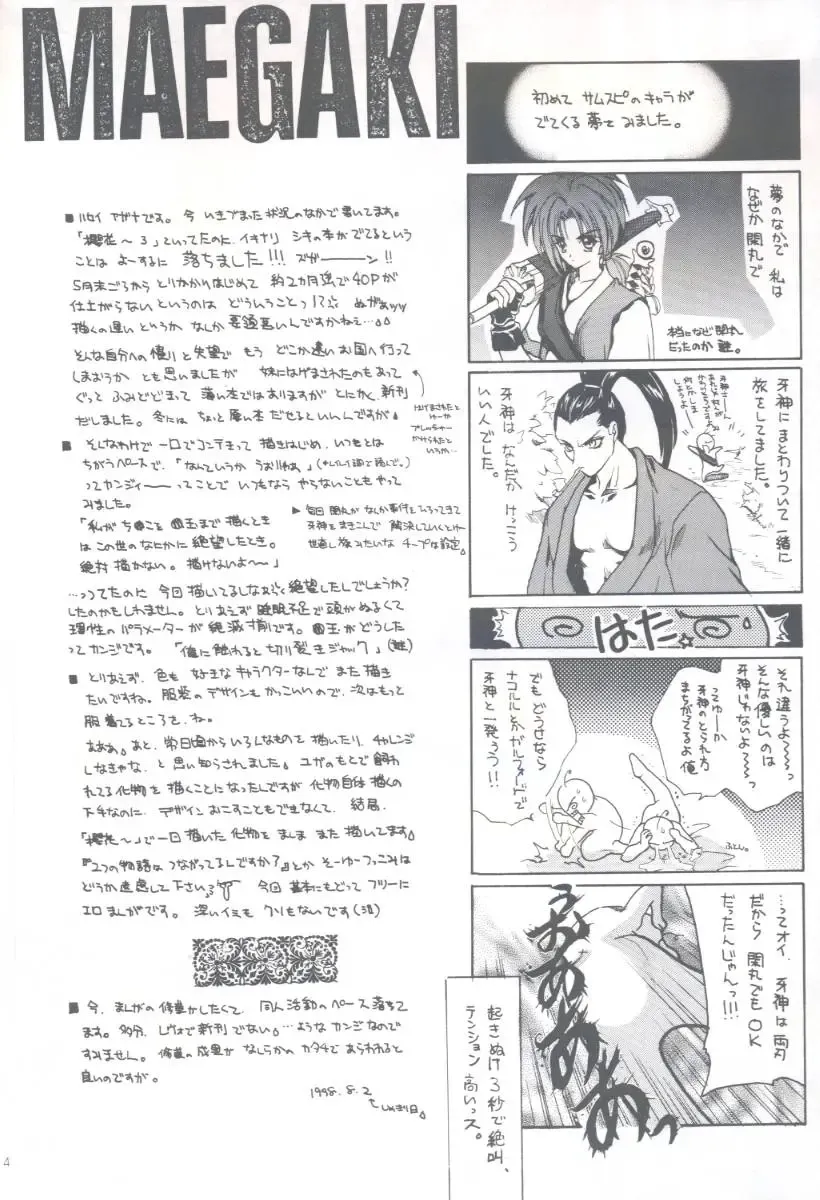 MAEGAKI
■ハセイ アガナです。今 いきづまった状況のなかで書いてます。
「櫻花〜3」といってたのに、イキナリ シキの本がでてるという
ことは よーするに 落ちました!!! ズガーーーン!!
5月末ごろから とりかかりはじめて 約2カ月強で40Pが
仕上がらないというのは どういうことっ
描くの遅い どうりか なんか 要領悪いんですかねえ…
そんな自分への憤りと失望で もう どこか遠いお国へ行って
しまおうか とも思いましたが 妹にはげまされたのもあって
ぐっと ふみとどまって 薄い本ではありますが とにかく、新刊
だしました。冬には ちょっと厚い本 だせるといいんですが。
はげまされたと
ゆーか
プレッシャー
かけられたと
いうか…
■そんなわけで 一日でコンテきって 描きはじめ、いつもとは
ちがうペースで、「なんていうか うおりゃあ」
ってカンジィーーーーってことで いつもなら やらないことも やって
みました。
「私が ち●こと ●玉まで 描くとき
は この世のなにかに 絶望したとき。
絶対 描かない。描けないよ〜」
▶毎回 閑丸が なんか事件を ひろってきて
牙神をまきこんで 解決していくとゆー
世直し旅みたいな チープな設定。
…ってたのに 今回描いてるしなあ 絶望したんでしょうか?
したのかもしれません。とりあえず 睡眠不足で頭がぬるくて
理性の パラメーターが 絶滅寸前です。●玉が どうした
ってカンジです。「俺に触れると 切り裂きジャック」(謎)
■とりあえず、色も 好きなキャラクターなんで また 描き
たいですね。服装のデザインも かっこいいので、次はもって
服着てるところを、ね。
あああ。あと、常日頃から いろんなものを 描いたり、チャレンジ
しなきゃな、と 思い知らされました。ユガのもとで 飼わ
れてる化物を 描くことに なったんですが 化物自体 描くの
下手なのに、デザイン おこすことも できなくて、結局、
「櫻花〜」で一回描いた 化物を まんま また 描いてます。
『2つの物語は つながってるんですか?』とか そーゆーつっこみは
どうか 遠慮して 下さい。 今回 基本にもどって フツーに
エロまんがです。深いイミも クソもないです(泣)
■今、まんがの 修業がしたくて、同人活動のペース 落ちて
ます。多分、レヴォで新刊 でない。…ようなカンジなので
すみません。修業の成果が なんらかの カタチで あらわれると
良いのですが。
1998.8.2
しめきり日。
4
初めて サムスピの キャラが
でてくる 夢を みました。
夢のなかで 私は
なぜか 閑丸で
本当になぜ閑丸
だったのか 謎。
牙神に まとわりついて 一緒に
旅をしてました。
牙神は なんだか けっこう
いい人でした。
はた☆
それ違うよ〜〜〜っ
そんな優しいのは
牙神じゃないよ〜〜〜っ
ってゆーか
牙神のとられ方
まちがってるよ 俺
でも どうせなら
ナコルルとか ガルフォードで
牙神と一発ろう!!
ふとん。
…ってオイ、牙神は 両刃
だから 閑丸でも OK
だったんじゃんっ!!!
うおあああぁっ
起きぬけ 3秒で 絶叫、
テンション 高いっス。